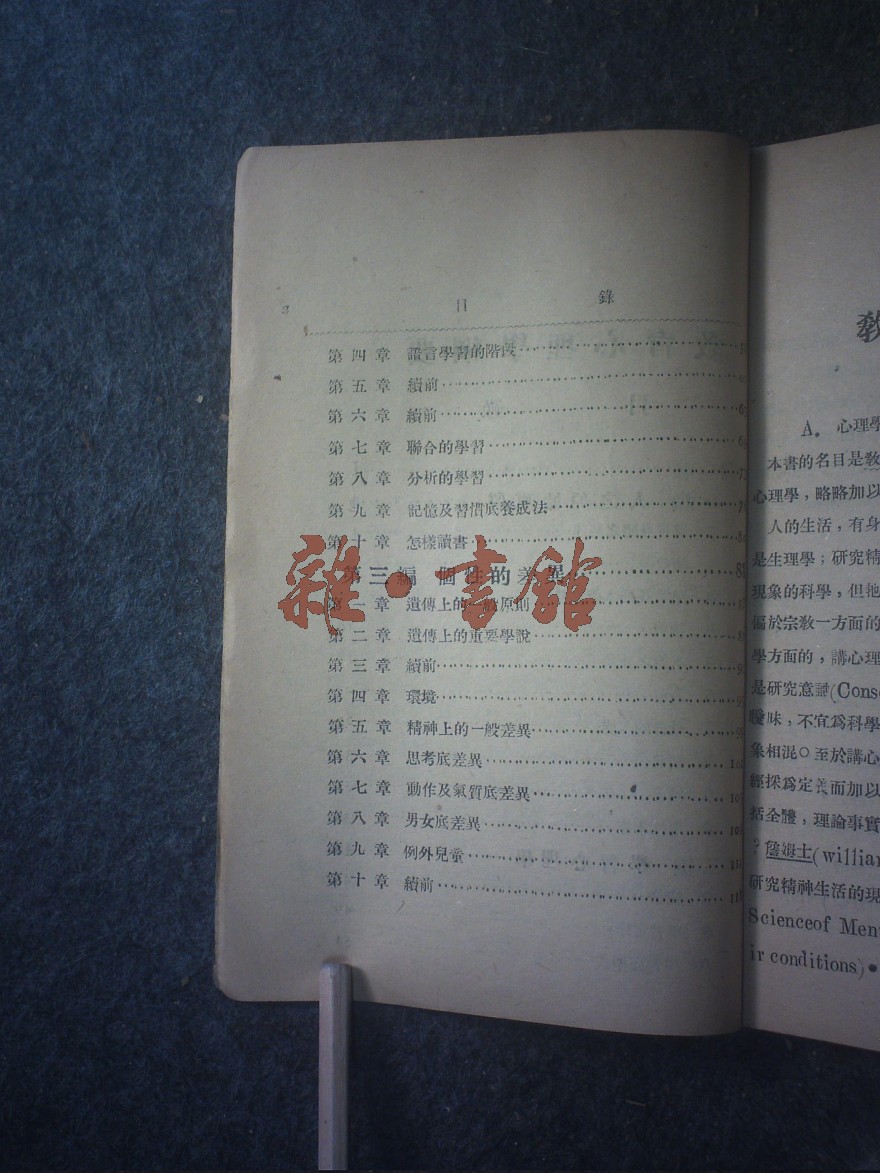 2 目 錄
第四章 語言學習的階段
第五章 續前
第六章 續前
第七章 聯合的學習
第八章 分析的學習
第九章 記憶及習慣底養成法
第十章 怎樣讀書
第三編 個性的差異
第一章 遺傳上的一般原則
第二章 遺傳上的重要學說
第三章 續前
第四章 環境
第五章 精神上的一般差異
第六章 思考底差異
第七章 動作及氣質底差異
第八章 男女底差異
第九章 例外兒童
第十章 續前
雜·書館
A. 心理學
本書的名目是敎
心理學，略略加以
人的生活，有身
是生理學；研究精
現象的科學，但
偏於宗敎一方面的
學方面的，講心理
是研究意識(Conso
曖昧，不宜爲科學
象相混○至於講心
經採爲定義而加以
括全體，理論事實
？詹姆士(willian
研究精神生活的現
Scienceof Men
ir conditions)